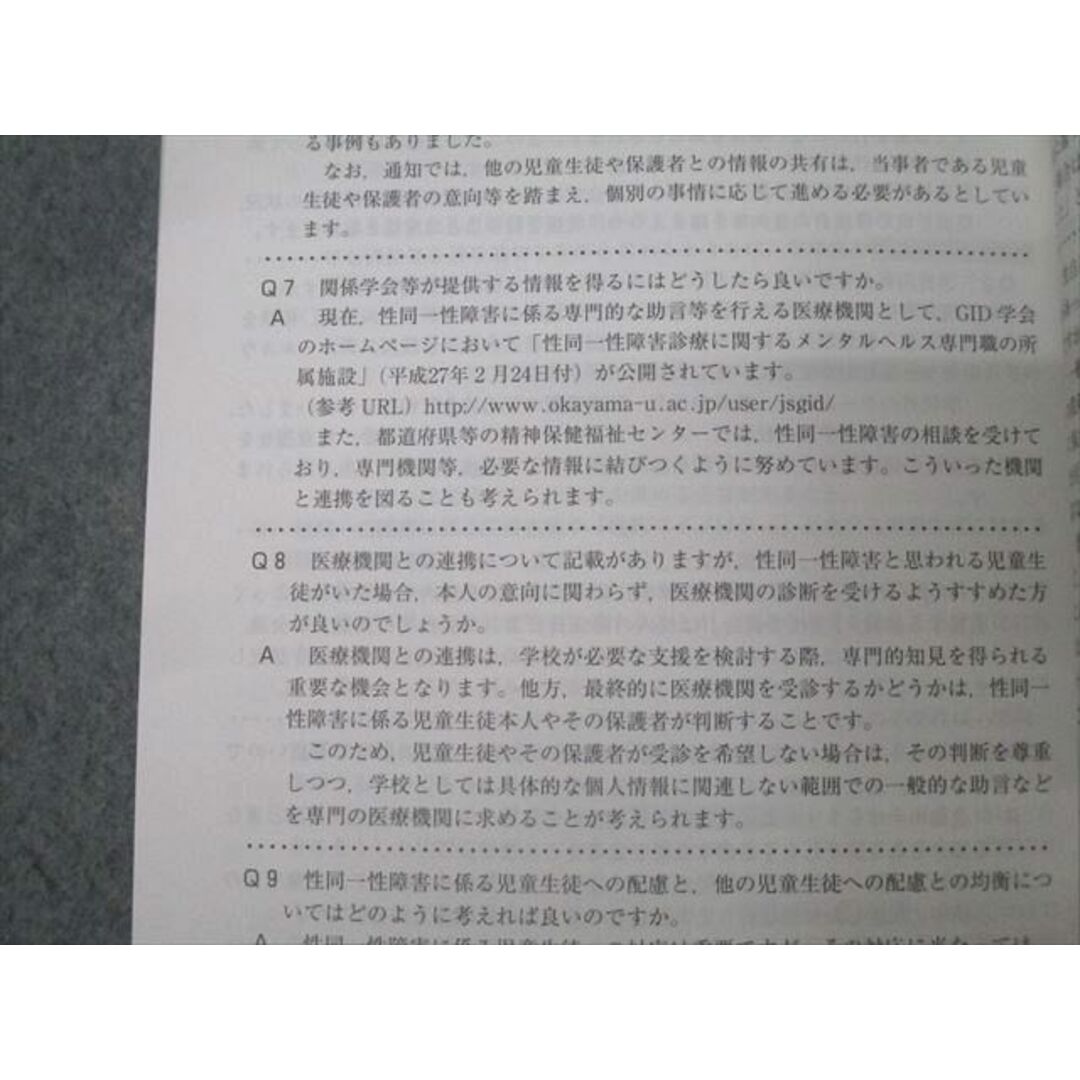 る事例もありました。
なお，通知では，他の児童生徒や保護者との情報の共有は，当事者である児童
生徒や保護者の意向等を踏まえ，個別の事情に応じて進める必要があるとしてい
ます。
Q7 関係学会等が提供する情報を得るにはどうしたら良いですか。
A 現在，性同一性障害に係る専門的な助言等を行える医療機関として，GID学会
のホームページにおいて「性同一性障害診療に関するメンタルヘルス専門職の所
属施設」（平成27年2月24日付）が公開されています。
（参考URL）http://www.okayama-u.ac.jp/user/jsgid/
また，都道府県等の精神保健福祉センターでは，性同一性障害の相談を受けて
おり，専門機関等，必要な情報に結びつくように努めています。こういった機関
と連携を図ることも考えられます。
Q8 医療機関との連携について記載がありますが，性同一性障害と思われる児童生
徒がいた場合，本人の意向に関わらず，医療機関の診断を受けるようすすめた方
が良いのでしょうか。
A 医療機関との連携は，学校が必要な支援を検討する際，専門的知見を得られる
重要な機会となります。他方，最終的に医療機関を受診するかどうかは，性同一
性障害に係る児童生徒本人やその保護者が判断することです。
このため，児童生徒やその保護者が受診を希望しない場合は，その判断を尊重
しつつ，学校としては具体的な個人情報に関連しない範囲での一般的な助言など
を専門の医療機関に求めることが考えられます。
Q9 性同一性障害に係る児童生徒への配慮と，他の児童生徒への配慮との均衡につ
いてはどのように考えれば良いのですか。
A 性同一性障害に係る児童生徒